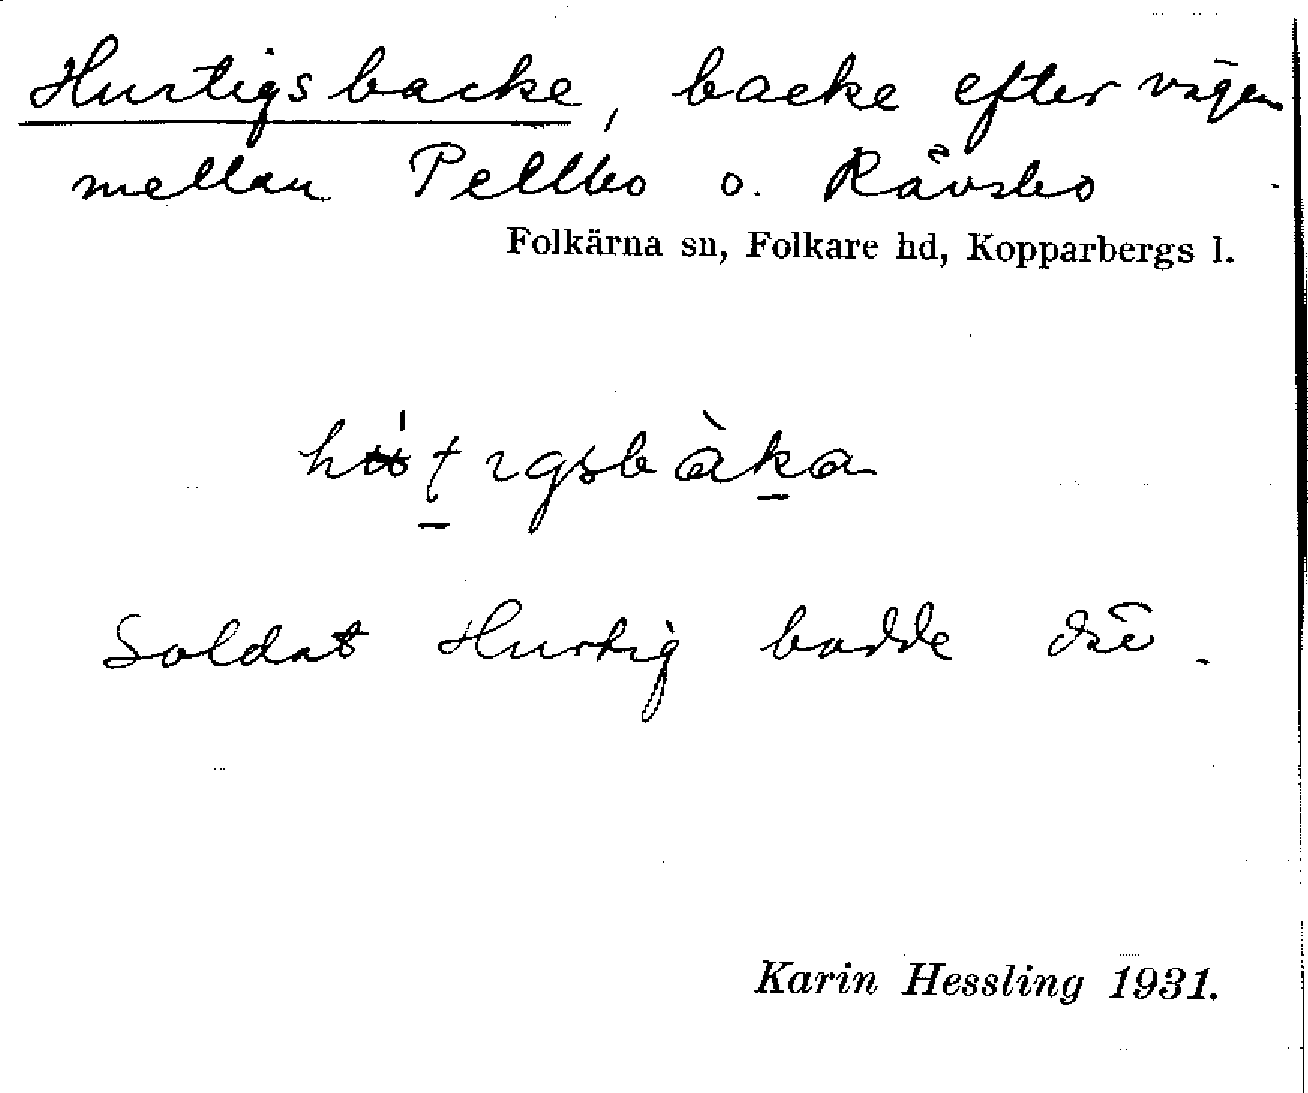 Hurtigsbacke, backe efter vägen
mellan Pellbo o. Rävsbo
Folkärna sn, Folkare hd, Kopparbergs l.
Soldat Hurtig bodde där.
Karin Hessling 1931.